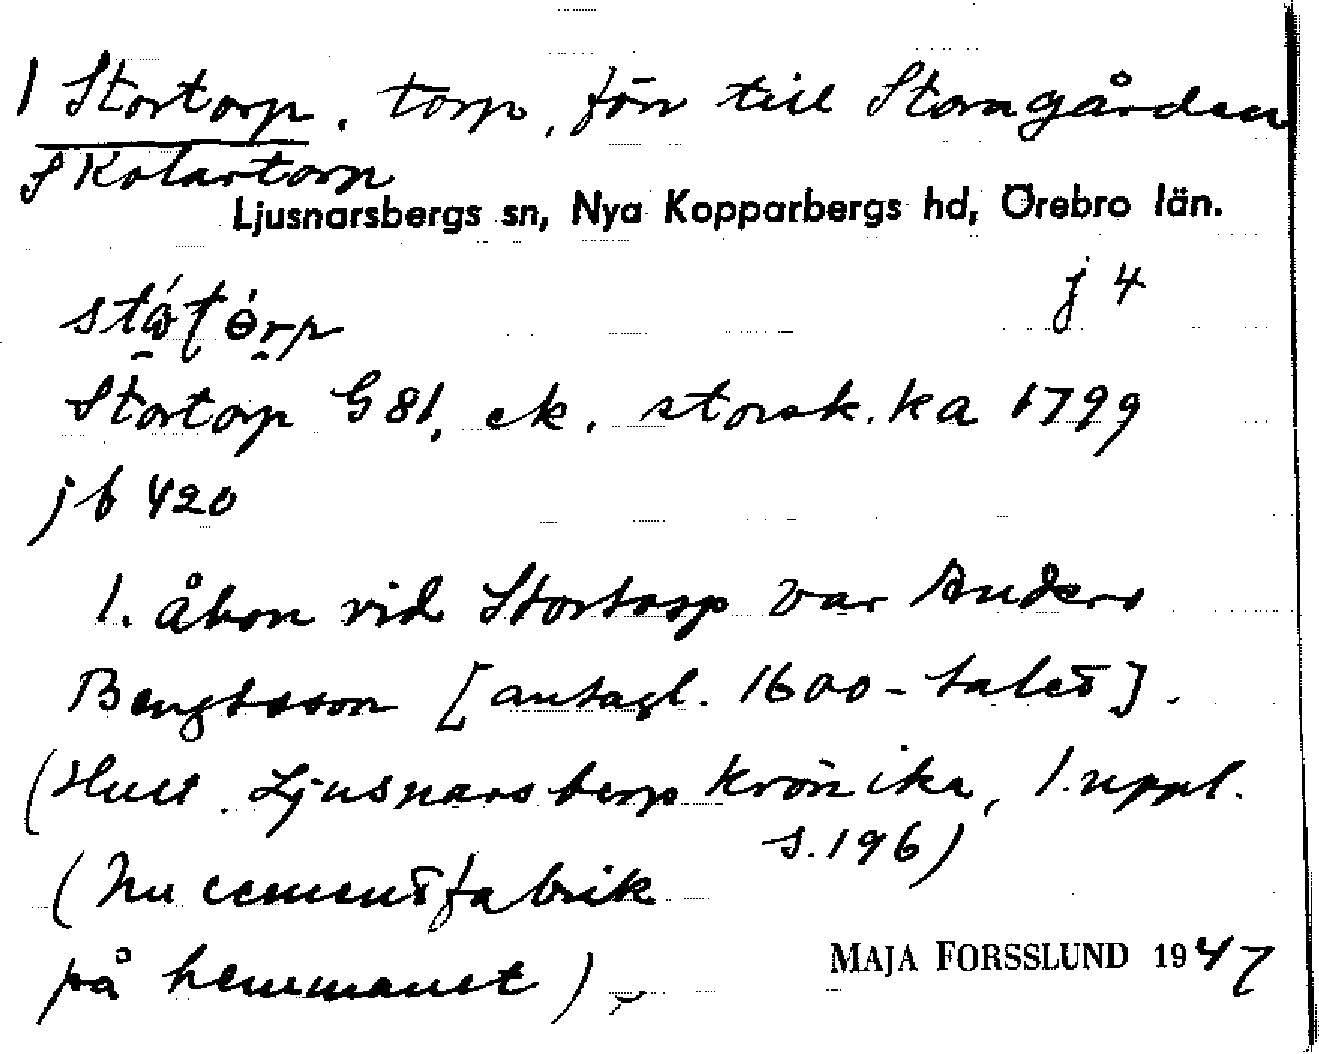 1 Stortorp, torp, förr till Storgården
f Kolartorp
Ljusnarsbergs sn, Nya Kopparbergs hd, Örebro län.
j 4
Stortorp G 81, ek. storsk.ka 1799
jb 420
1. åbon vid Stortorp var Anders
Bengtsson [antagl. 1600-talet].
(Hult. Ljusnarsbergs krönika, 1. uppl.
s. 196)
(nu cementfabrik
på hemmanet)
MAJA FORSSLUND 1947